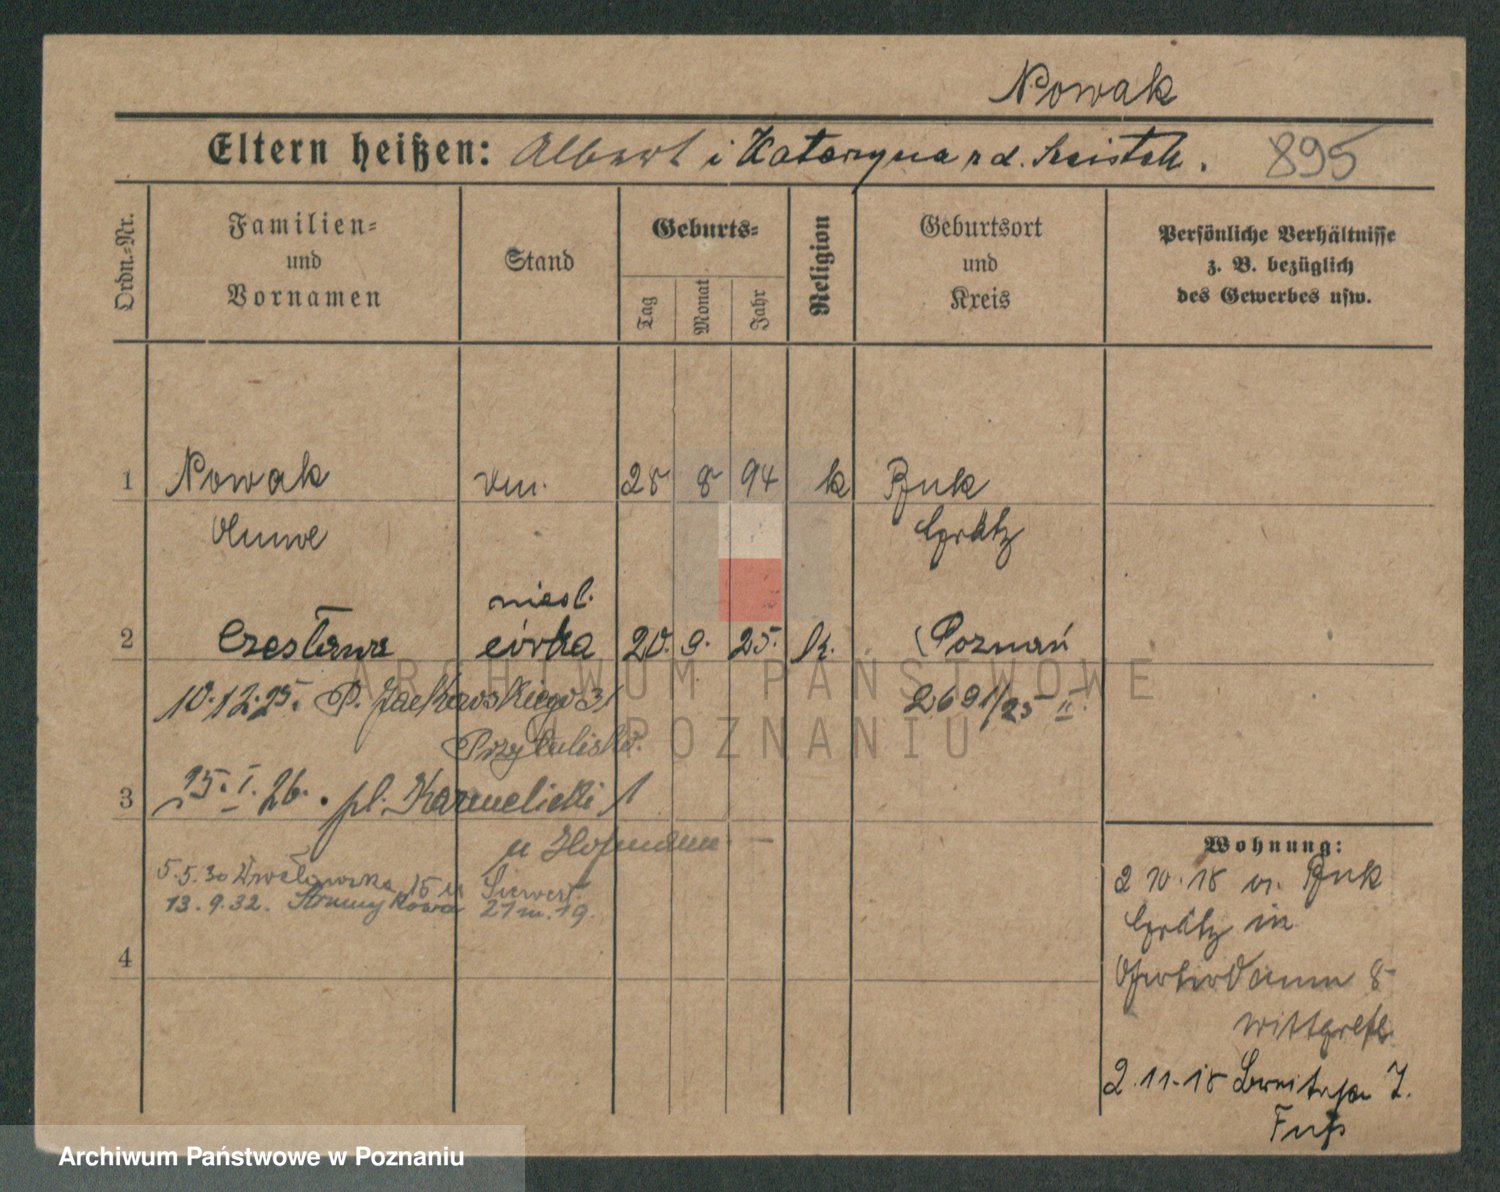 Nowak
Eltern heißen: Albert i Katarzyna z d. 895
Ordn.-Nr.
Familien-
und
Vornamen
Stand
Geburts-
Tag
Monat
Jahr
Religion
Geburtsort
und
Kreis
Persönliche Verhältnisse
z. B. bezüglich
des Gewerbes usw.
1 Nowak 28 8 94 k Buk
Grätz
niesl.
2 Czesława córka 20. 9. 25. k. Poznań
10.12.25. P. Jackowskiego 31 2691/25 II.
Przytulisko.
3 15. I. 26. pl. Karmelicki 1
u Hofmann
5.5.30 15 u Siewert.
13.9.32. 21 m. 19.
4
Wohnung:
2 10.18 v. Buk
Grätz in
8
2.11.18 7.
ARCHIWUM PAŃSTWOWE
W POZNANIU
Archiwum Państwowe w Poznaniu